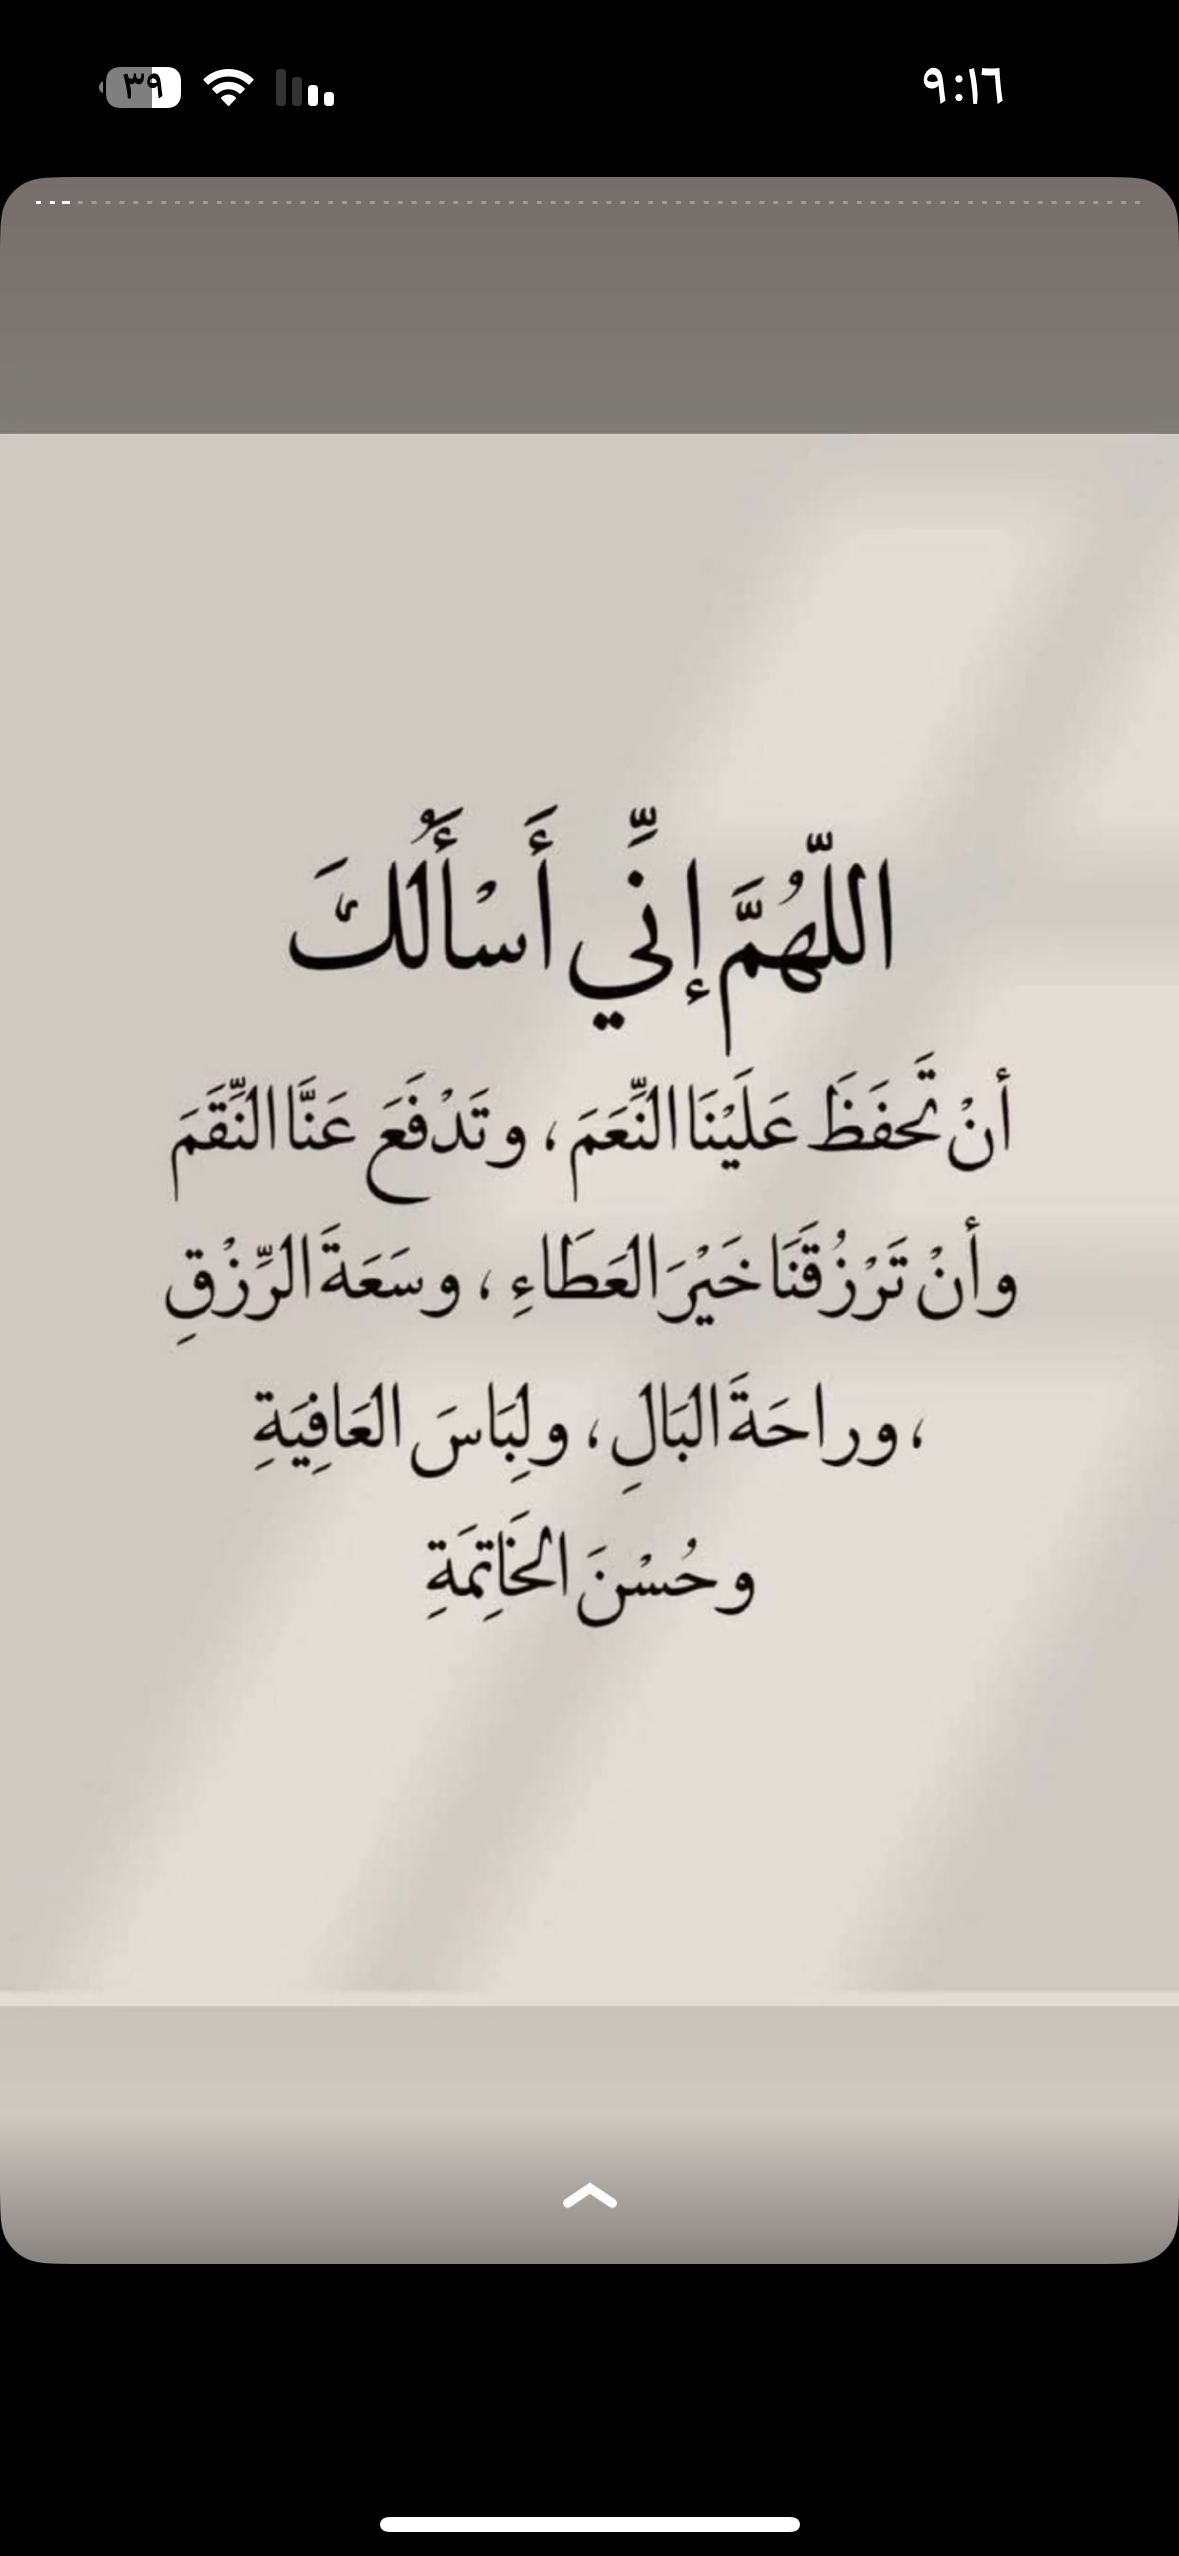 ٩:١٦
٣٩
اللّهُمَّ إنِّي أَسْأَلُكَ
أنْ تَحفَظَ عَلَيْنَا النِّعَمَ ، و تَدْفَعَ عَنَّا النِّقَمَ
و أنْ تَرْزُقَنَا خَيْرَ العَطَاءِ ، و سَعَةَ الرِّزْقِ
، و راحَةَ البَالِ ، و لِبَاسَ العَافِيَةِ
و حُسْنَ الخَاتِمَةِ